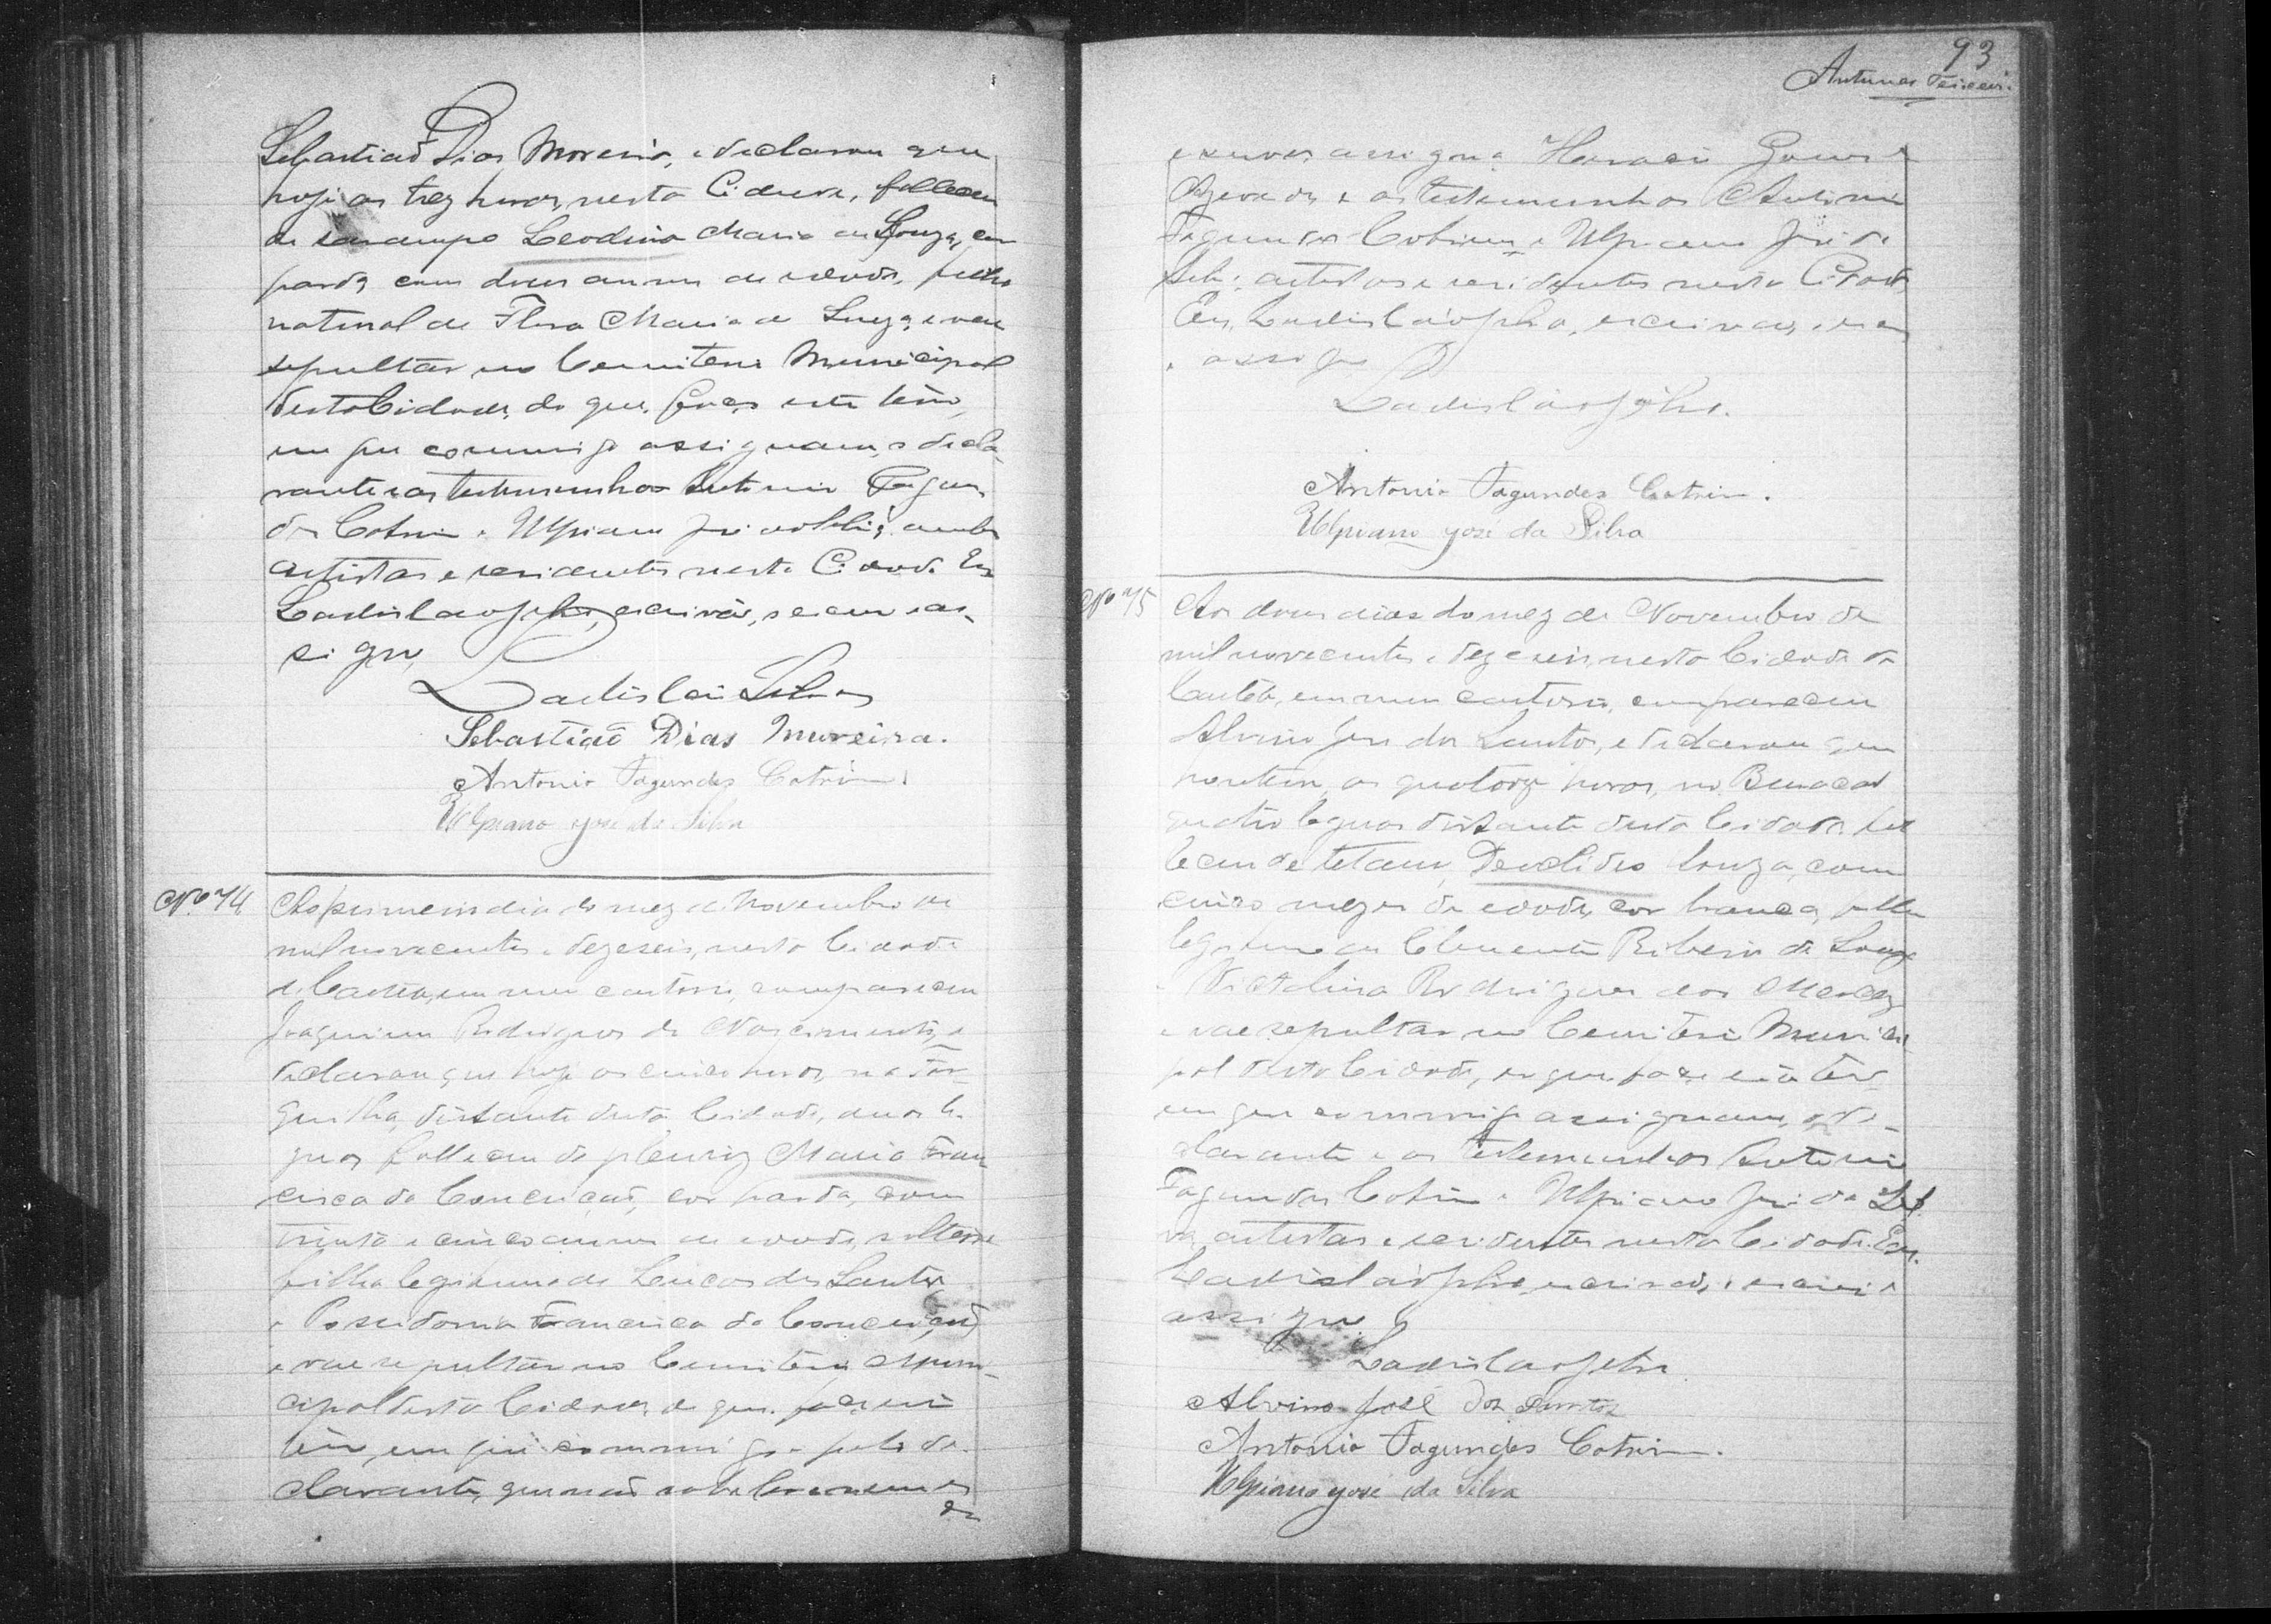 Sebastião Dias Moreira, e declarou que
hoje as trez horas, nesta Cidade, falleceu
de sarampo Leodina Maria de Souza, cor
parda, com dous annos de edade, filha
natural de Flora Maria de Souza, e vae
sepultar no Cemiterio Municipal
desta Cidade, do que faço este têrmo,
em que commigo assignam, o decla-
rante e as testemunhas Antonio Fagun-
des Cotrim e Ulpiano José da Silva, ambos
artistas e residentes nesta Cidade. Eu
Ladislao Silva, escrivão, escrevi e as-
signo
Ladislao Silva
Sebastião Dias Moreira.
Antonio Fagundes Cotrim.
Ulpiano José da Silva
Nº 74 Ao primeiro dia do mez de Novembro de
mil novecentos e dezeseis, nesta Cidade
de Caeteté, em meu cartorio, compareceu
Joaquim Rodrigues do Nascimento, e
declarou que hoje as cinco horas, na
distante desta Cidade, duas le-
guas falleceu de pleuriz Maria Fran-
cisca da Conceição, cor parda, com
trinta e cinco annos de edade, solteira
filha legitima de Lucas dos Santos
e Poseidonia Francisca da Conceição
e vae sepultar no Cemiterio Muni-
cipal desta Cidade, do que faço este
têrmo, em que commigo e pelo de-
clarante, que não sabe ler nem es
93
Antunes Teixeira
crever assigna Horacio Gomes
Azevedo e as testemunhas Antonio
Fagundes Cotrim e Ulpiano José da
Silva, artistas e residentes nesta Cidade.
Eu, Ladislao Silva, escrivão, escrevi
e assigno
Ladislao Silva.
Antonio Fagundes Cotrim.
Ulpiano José da Silva
Nº 75 Aos dous dias do mez de Novembro de
mil novecentos e dezeseis, nesta Cidade de
Caeteté, em meu cartorio, compareceu
Alvino José dos Santos, e declarou que
hontem, as quatorze horas, no
quatro leguas distante desta Cidade, fal-
leceu de tetano, Deoclides Souza, com
cinco mezes de edade, cor branca, filho
legitimo de Clemente Ribeiro de Souza
e Victolina Rodrigues das Mercez
e vae sepultar no Cemiterio Munici-
pal desta Cidade, do que faço este têrmo
em que commigo assignam, o de-
clarante e as testemunhas Antonio
Fagundes Cotrim e Ulpiano José da Sil-
va, artistas e residentes nesta Cidade. Eu,
Ladislao Silva, escrivão, escrevi e
assigno
Ladislao Silva
Alvino José dos Santos
Antonio Fagundes Cotrim.
Ulpiano José da Silva